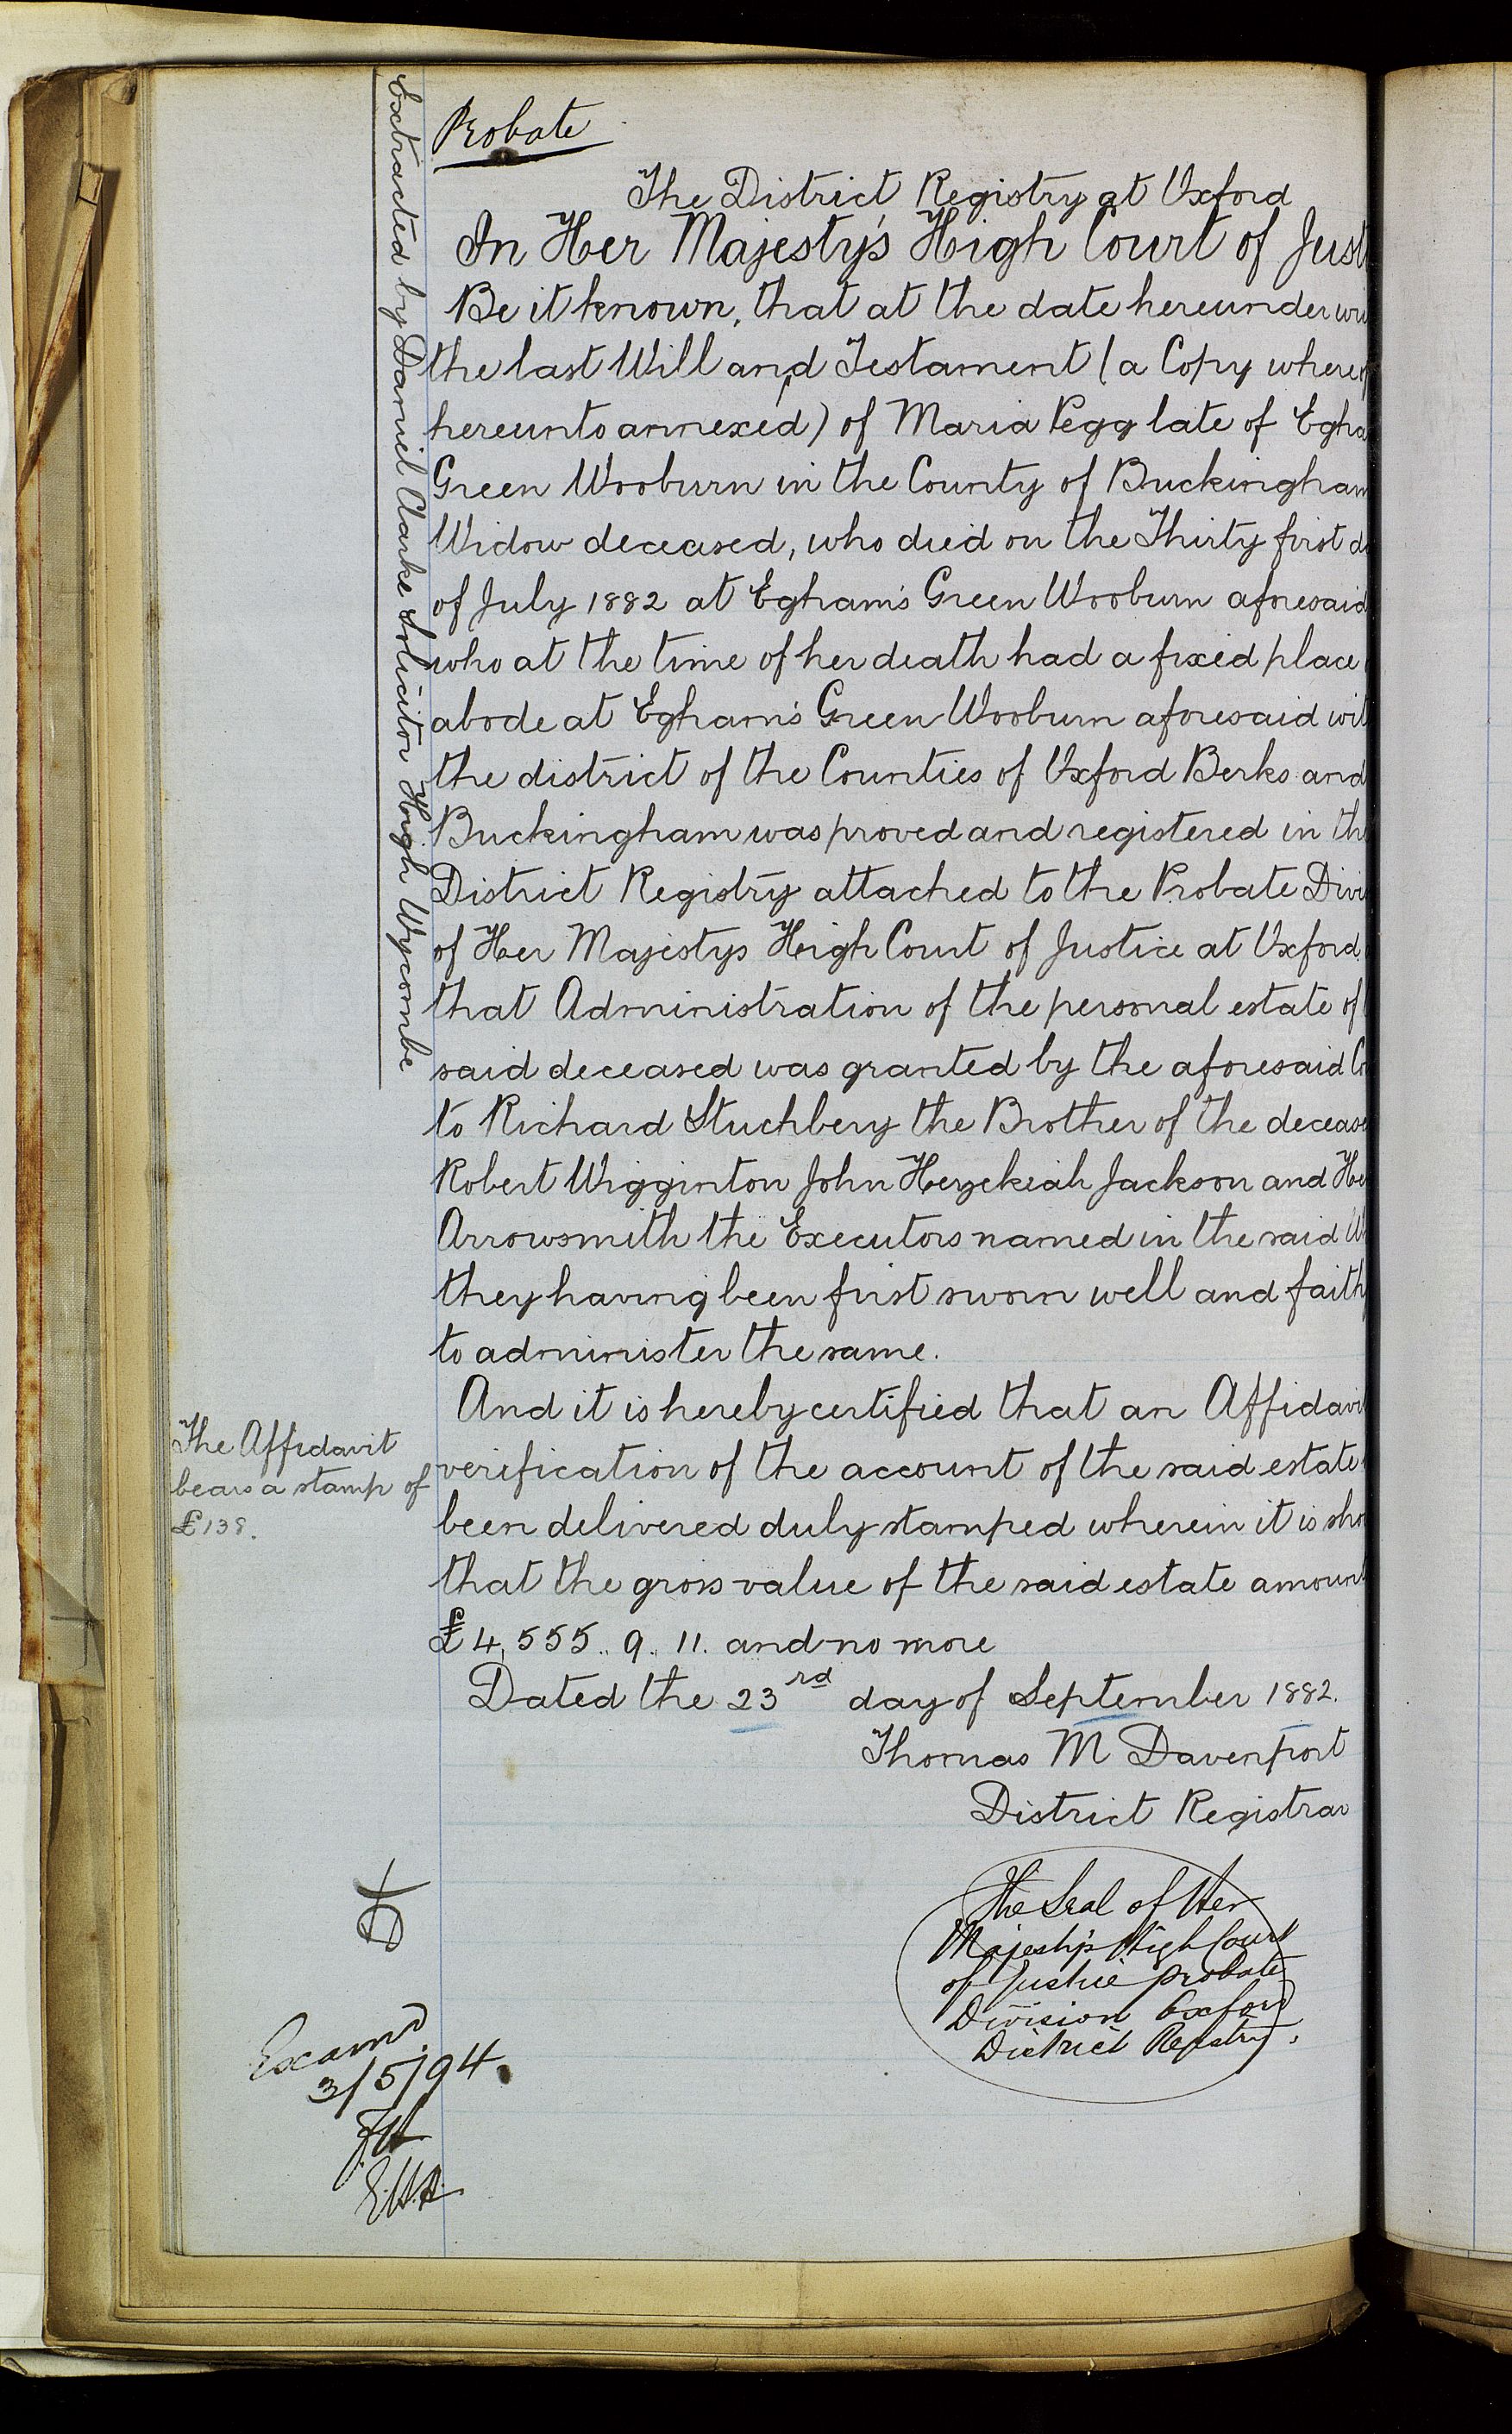 Probate
The District Registry at Oxford
In Her Majesty's High Court of Just
Be it known, that at the date hereunder wri
the last Will and Testament (a Copy whereof
hereunto annexed) of Maria Pegg late of Egha
Green Wooburn in the County of Buckingham
Widow deceased, who died on the Thirty first d
of July 1882 at Egham's Green Wooburn aforesaid
who at the time of her death had a fixed place
abode at Egham's Green Wooburn aforesaid wit
the district of the Counties of Oxford Berks and
Buckingham was proved and registered in th
District Registry attached to the Probate Divi
of Her Majestys High Court of Justice at Oxford
that Administration of the personal estate of
said deceased was granted by the aforesaid Co
to Richard Stuchbery the Brother of the decease
Robert Wigginton John Hezekiah Jackson and He
Arrowsmith the Executors named in the said W
they having been first sworn well and faith
to administer the same.
And it is hereby certified that an Affidavi
verification of the account of the said estate
been delivered duly stamped wherein it is sho
that the gross value of the said estate amount
£4,555.. 9.. 11. and no more
Dated the 23rd day of September 1882.
Thomas M Davenport
District Registrar
The Seal of Her
Majesty's High Court
of Justice Probate
Division Oxford
District Registry.
Extracted by Daniel Clarke Solicitor High Wycombe
The Affidavit
bears a stamp of
£138.
Examd.
3/5/94.